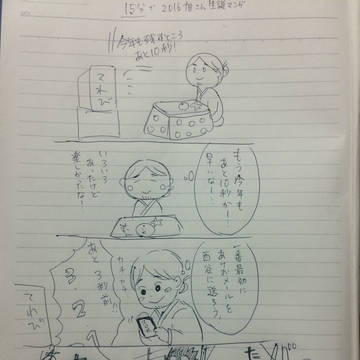 15分で2016
生誕マンガ
今年も残すところ
あと10秒!
てれび
もう今年も
あと10秒かー!
早いなー!
いろいろ
あったけど
楽しかったな!
一番最初に
あけおメールを
西谷に送ろう。
カチカチ
あと3秒前!!
3.
2
てれび